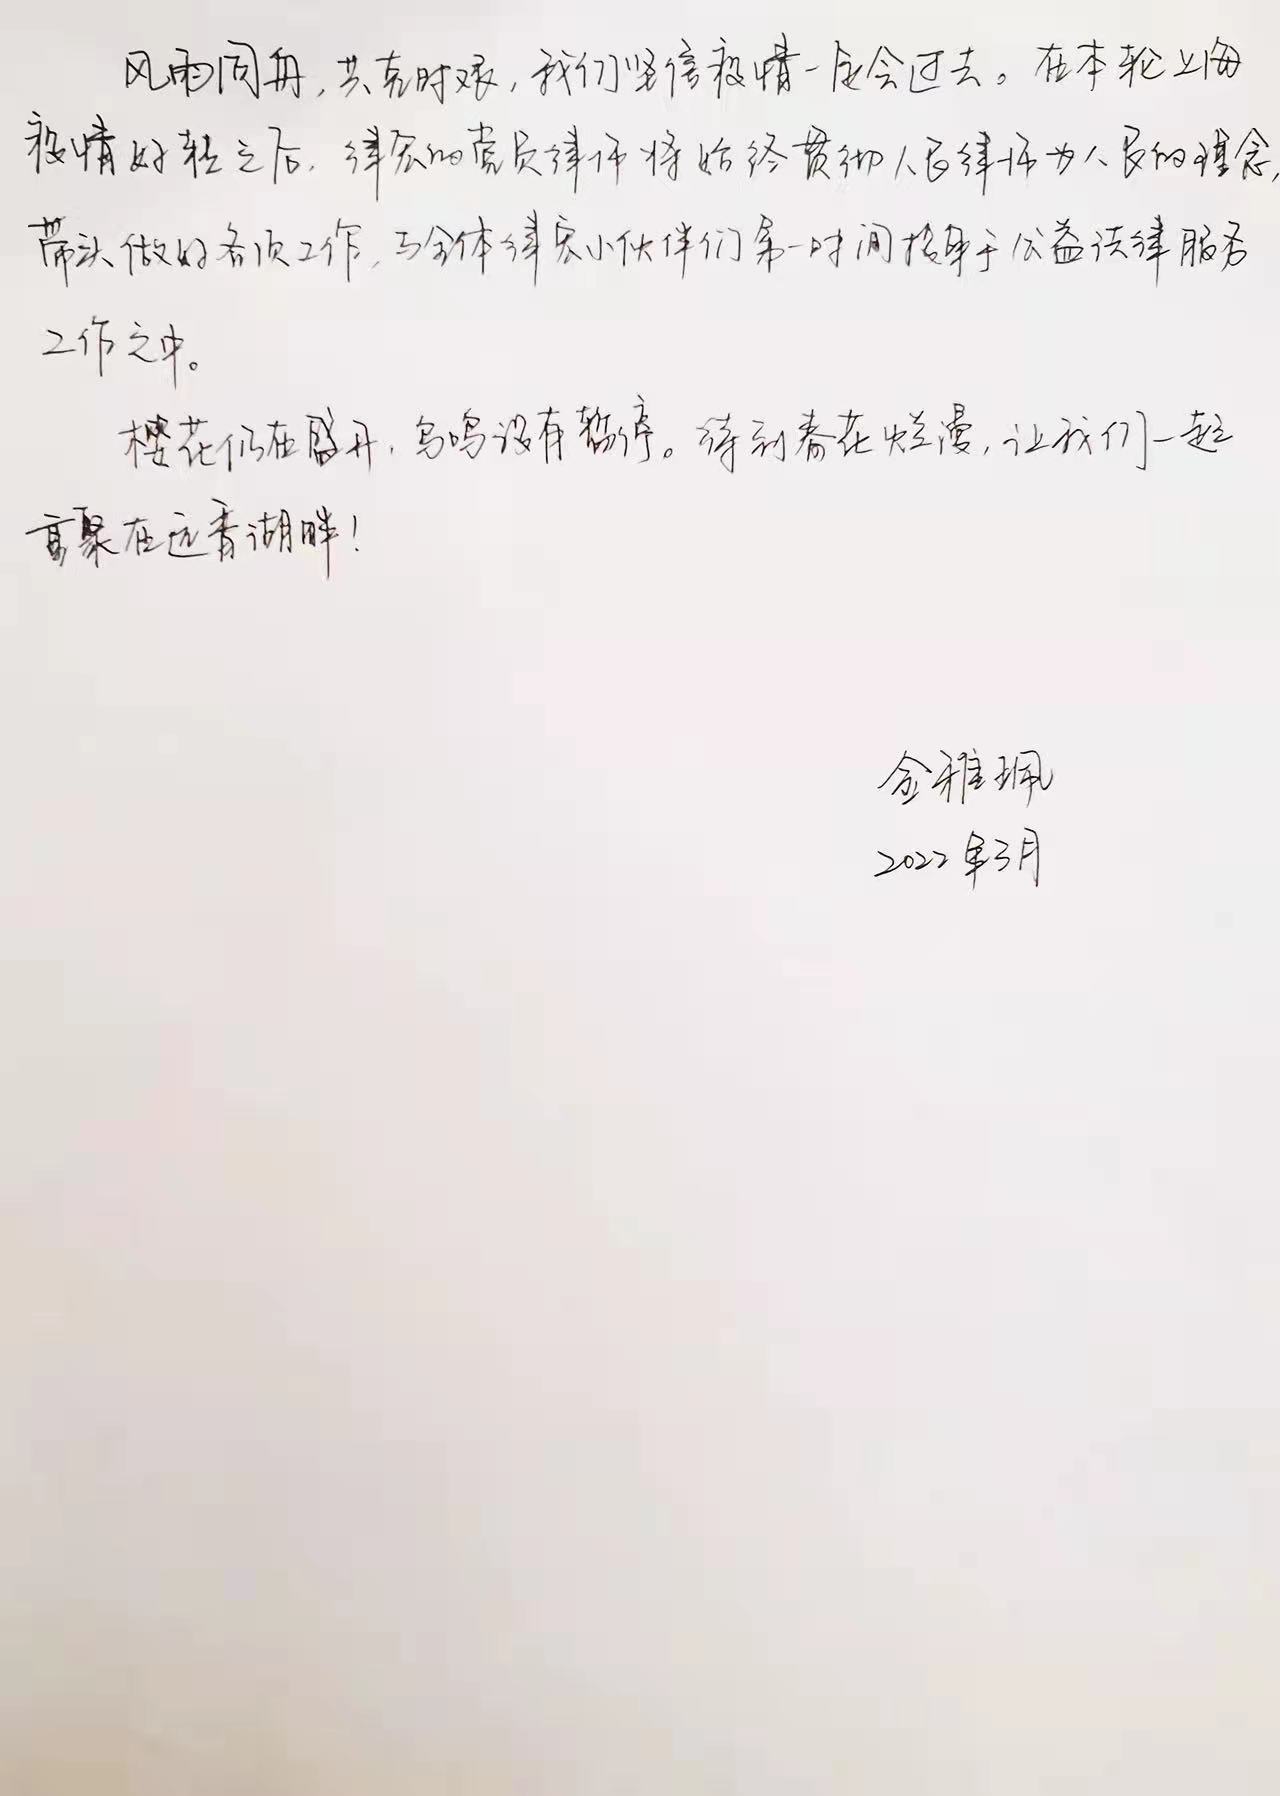 风雨同舟,共克时艰,我们坚信疫情一定会过去。在本轮上海
疫情好转之后,律宏的党员律师将始终贯彻人民律师为人民的理念,
带头做好各项工作,与全体律宏小伙伴们第一时间投身于公益法律服务
工作之中。
樱花仍在盛开,鸟鸣没有暂停。待到春花烂漫,让我们一起
高聚在远香湖畔!
金雅珮
2022年3月